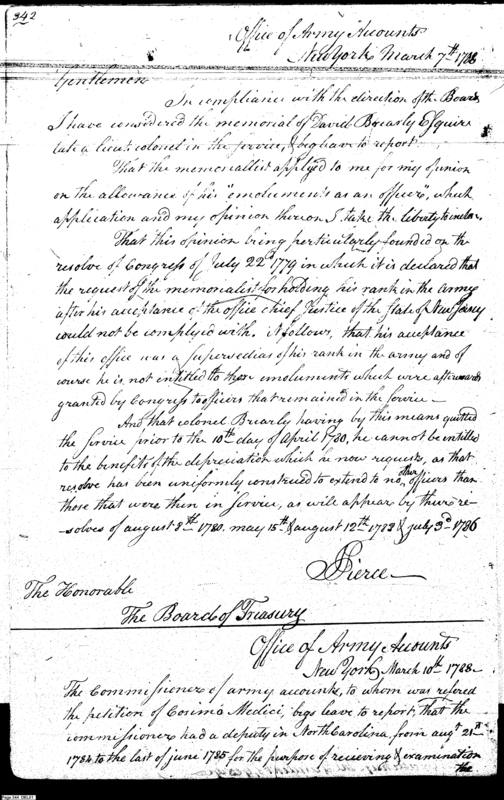 342
Office of Army Accounts
New York March 7th 1788
Gentlemen
In compliance with the direction of the Board
I have considered the memorial of David Brearly Esquire
late a lieut colonel in the service, & beg leave to report.
That the memorialist applyed to me for my opinion
on the allowance of his "emoluments as an officer", which
application and my opinion thereon I take the liberty to inclose,
That this opinion being perticularly founded on the
resolve of Congress of July 22d 1779 in which it is declared that
the request of the memorialist for holding his rank in the army
after his acceptance of the office chief Justice of the State of New Jersey
could not be complyed with, it follows, that his acceptance
of this office was a Supersedias of his rank in the army and of
course he is not intitled to those emoluments which were afterwards
granted by Congress to officers that remained in the Service—
And that colonel Brearly having by this means quitted
the Service prior to the 10th day of April 1780, he cannot be entitled
to the benefit of the depreciation which he now requests, as that
resolve has been uniformly construed to extend to no other officers than
those that were then in Service, as will appear by there re-
-solves of august 8th 1780. may 15th & august 12th 1783 & july 3d 1786
J Pierce—
The Honorable
The Board of Treasury
Office of Army Accounts
New York, March 10th 1788—
The Commissioner of army accounts, to whom was refered
the petition of Cosimo Medici, begs leave to report, that the
commissioner had a deputy in North Carolina, from augt 21st
1784 to the last of june 1785 for the purpose of recieving & examination
the